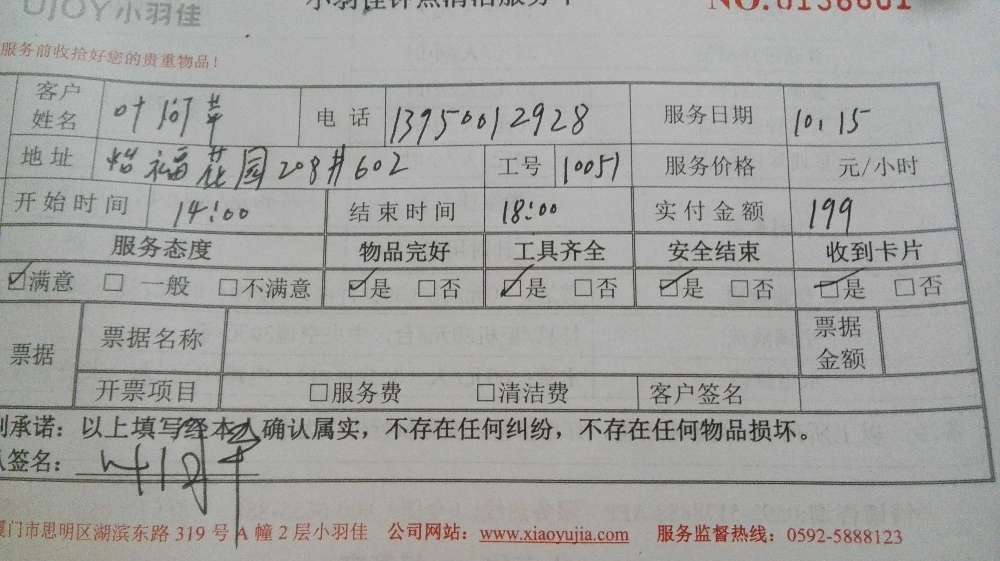 UJOY小羽佳 小羽佳钟点清洁服务单 NO.0138601
服务前收拾好您的贵重物品！
客户姓名 叶 电话 13950012928 服务日期 10.15
地址 怡福花园208#602 工号 10051 服务价格 元/小时
开始时间 14:00 结束时间 18:00 实付金额 199
服务态度 物品完好 工具齐全 安全结束 收到卡片
☑满意 □一般 □不满意 ☑是 □否 ☑是 □否 ☑是 □否 ☑是 □否
票据 票据名称 票据金额
开票项目 □服务费 □清洁费 客户签名
承诺：以上填写经本人确认属实，不存在任何纠纷，不存在任何物品损坏。
签名：
厦门市思明区湖滨东路 319 号 A 幢 2 层小羽佳 公司网站：www.xiaoyujia.com 服务监督热线：0592-5888123